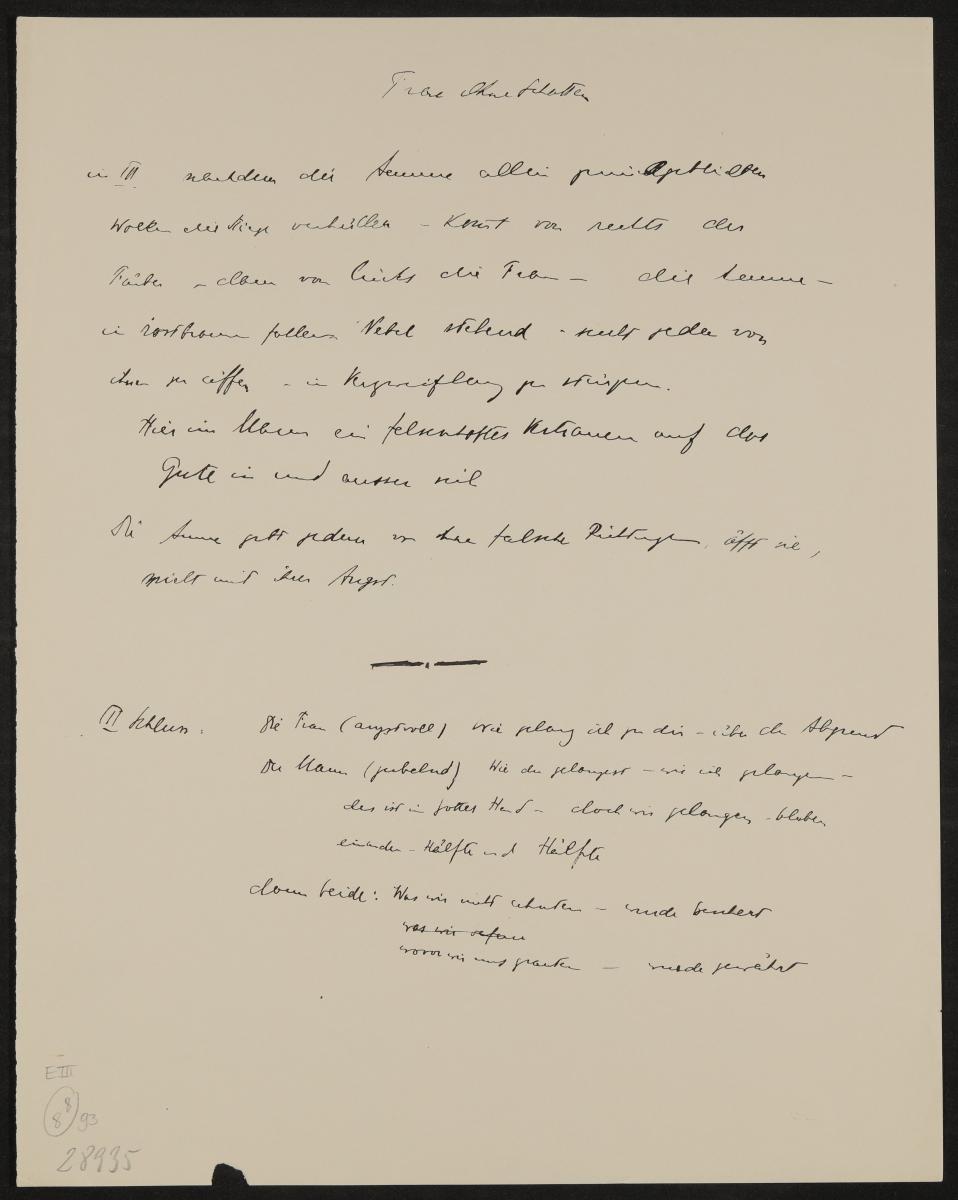 Frau ohne Schatten
in III nachdem die Amme allein zurückgeblieben
Wolken die Stiege verhüllen – Komt von rechts der
Färber – dann von links die Frau – die Amme –
in rostbraun fallen Nebel stehend – sucht jeden von
ihnen zu äffen – in Verzweiflung zu stürzen.
Hier im Mann ein felsenhaftes Vertrauen auf das
Gute in und ausser sich
Die Amme gibt jedem von ihnen falsche Richtungen, äfft sie,
spielt mit ihrer Angst.
III Schluss: Die Frau (angstvoll) Wie gelang ich zu dir – über den Abgrund
Der Mann (jubelnd) Wie du gelangest – wie ich gelange –
das ist in Gottes Hand – doch wir gelangen – bleiben
einander – Hälfte und Hälfte
dann beide: Was wir nicht ahnten – wurde beschert
was wir
wovor wir uns grauten – wurde gewährt
E III
8 8 93
28935